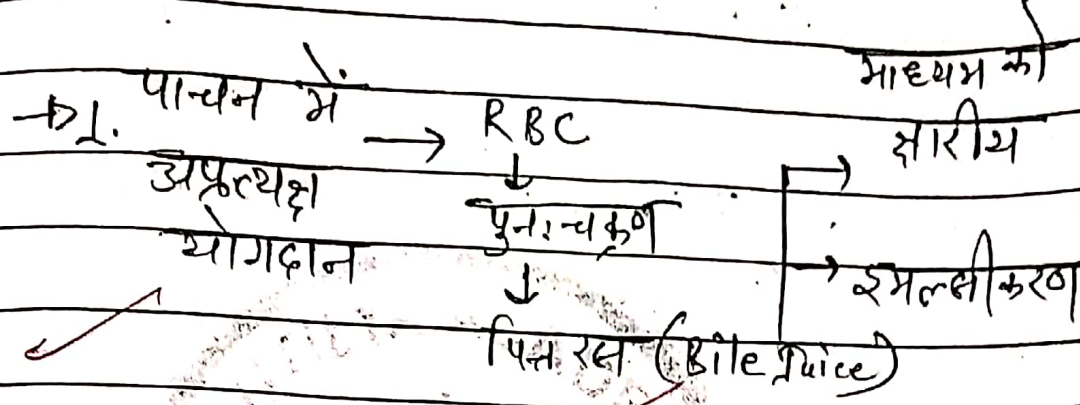 →1. पाचन में → RBC
अप्रत्यक्ष
योगदान
↓
पुनःचक्रण
↓
पित्त रस (Bile Juice)
→ माध्यम को
क्षारीय
→ इमल्सीकरण